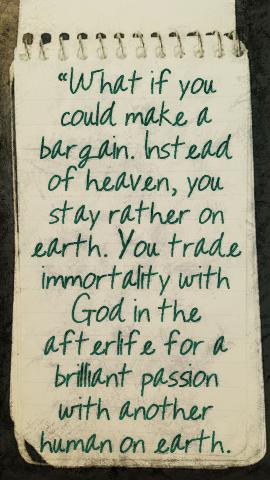 “What if you
could make a
bargain. Instead
of heaven, you
stay rather on
earth. You trade
immortality with
God in the
afterlife for a
brilliant passion
with another
human on earth.